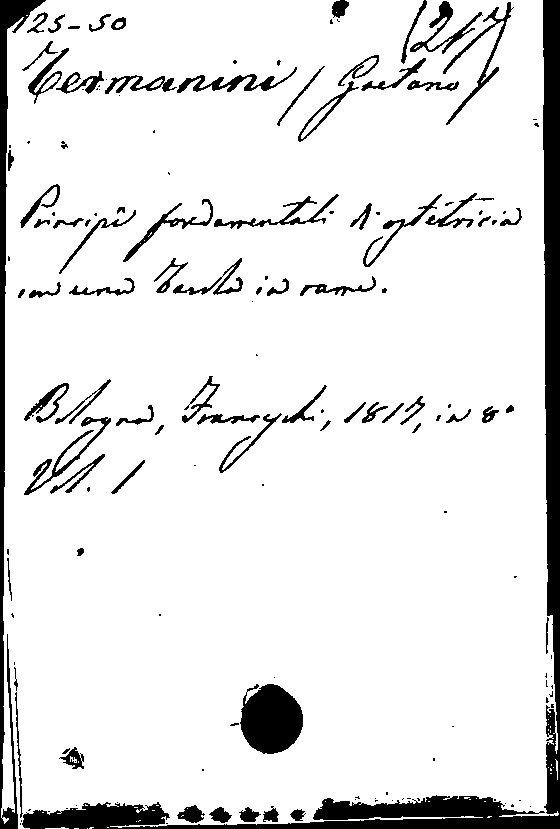 125-50 (217)
Termanini (Gaetano)
Principî fondamentali di ostetricia
con una Tavola in rame.
Bologna, Franceschi, 1817, in 8°
Vol. 1